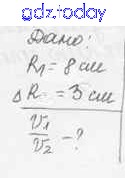 gdz.today
Дано:
R₁ = 8 см
Δ R = 3 см
v₁
v₂ - ?